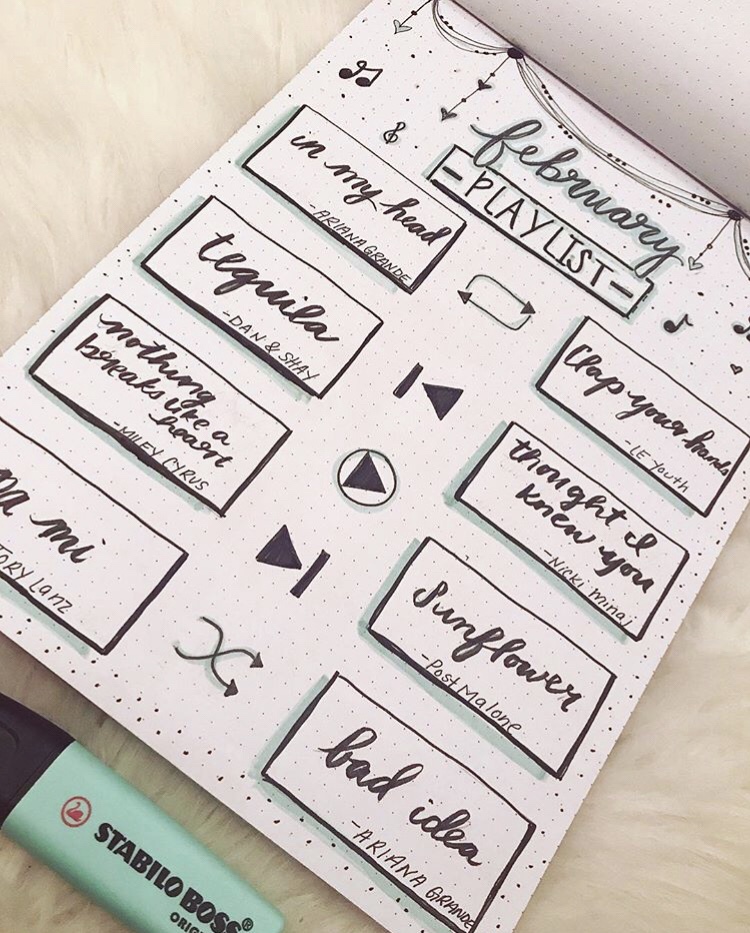 february
-PLAYLIST-
in my head
-ARIANA GRANDE
tequila
-DAN & SHAY
nothing
breaks like a
heart
-MILEY CYRUS
mi
TORY Lanz
Clap your hands
-LE Youth
thought I
knew you
-Nicki Minaj
Sunflower
-Post Malone
bad idea
-ARIANA GRANDE
STABILO BOSS®
ORIGI